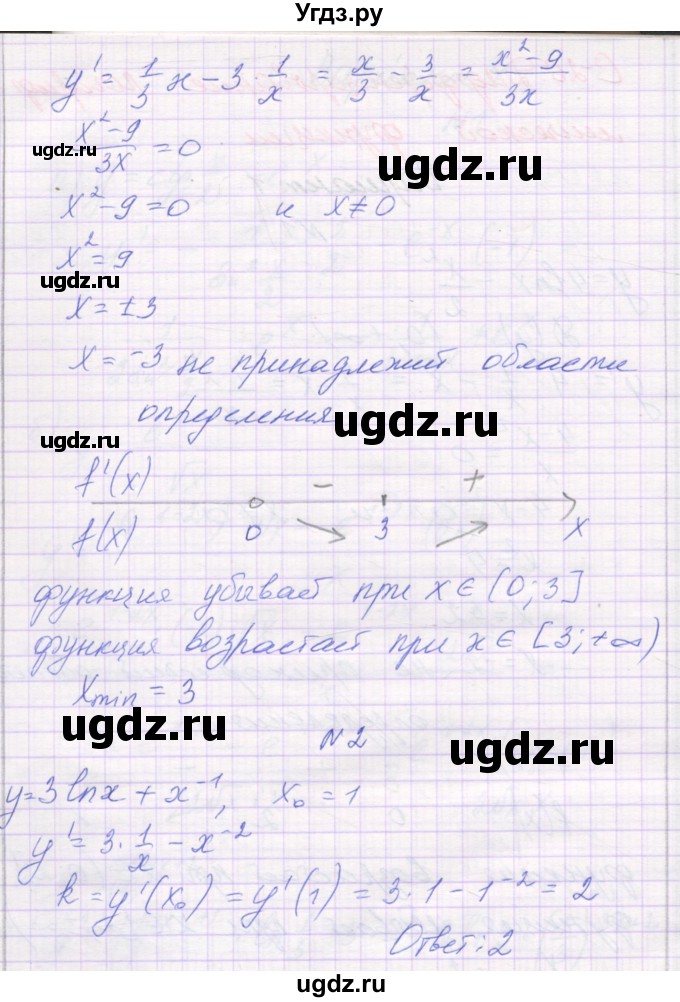 Угдз.ру
y' = 1/3 x - 3 · 1/x = x/3 - 3/x = (x² - 9)/3x
ugdz.ru
(x² - 9)/3x = 0
ugdz.ru ugdz.ru
x² - 9 = 0 и x ≠ 0
x² = 9
ugdz.ru ugdz.ru
x = ±3
x = -3 не принадлежит области
определения
ugdz.ru ugdz.ru
f'(x) - +
0 3 x
f(x)
ugdz.ru ugdz.ru
функция убывает при x ∈ (0; 3]
функция возрастает при x ∈ [3; +∞)
xmin = 3
ugdz.ru ugdz.ru
N2
y = 3 ln x + x⁻¹, x₀ = 1
y' = 3 · 1/x - x⁻²
ugdz.ru ugdz.ru
k = y'(x₀) = y'(1) = 3 · 1 - 1⁻² = 2
Ответ: 2
ugdz.ru ugdz.ru